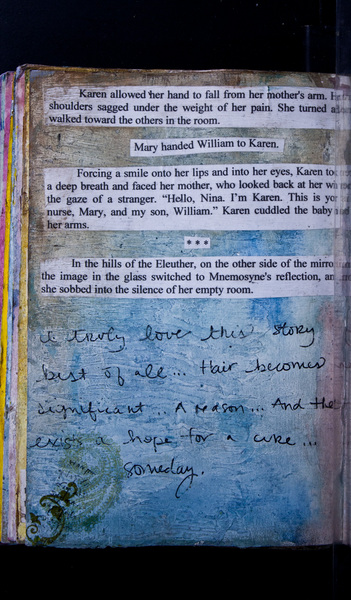 Karen allowed her hand to fall from her mother's arm. Her
shoulders sagged under the weight of her pain. She turned a
walked toward the others in the room.
Mary handed William to Karen.
Forcing a smile onto her lips and into her eyes, Karen too
a deep breath and faced her mother, who looked back at her wi
the gaze of a stranger. "Hello, Nina. I'm Karen. This is yo
nurse, Mary, and my son, William." Karen cuddled the baby
her arms.
***
In the hills of the Eleuther, on the other side of the mirro
the image in the glass switched to Mnemosyne's reflection, an
she sobbed into the silence of her empty room.
I truly love this story
best of all... Hair becomes
significant .. A reason... And the
exists a hope for a cure...
someday.